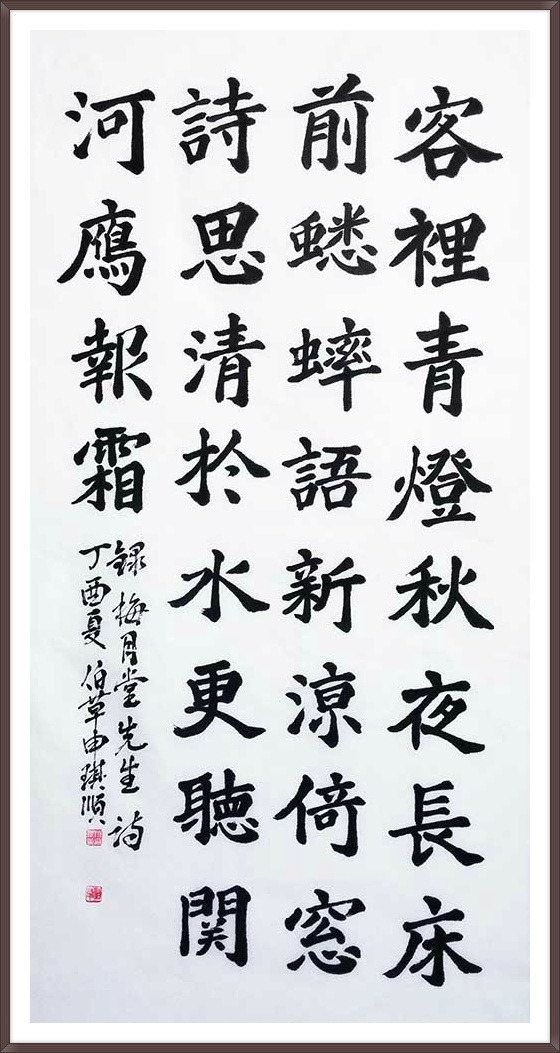 客裡青燈秋夜長床
前蟋蟀語新涼倚窓
詩思清於水更聽關
河鴈報霜
録梅月堂先生詩
丁酉夏 伯草申琪順